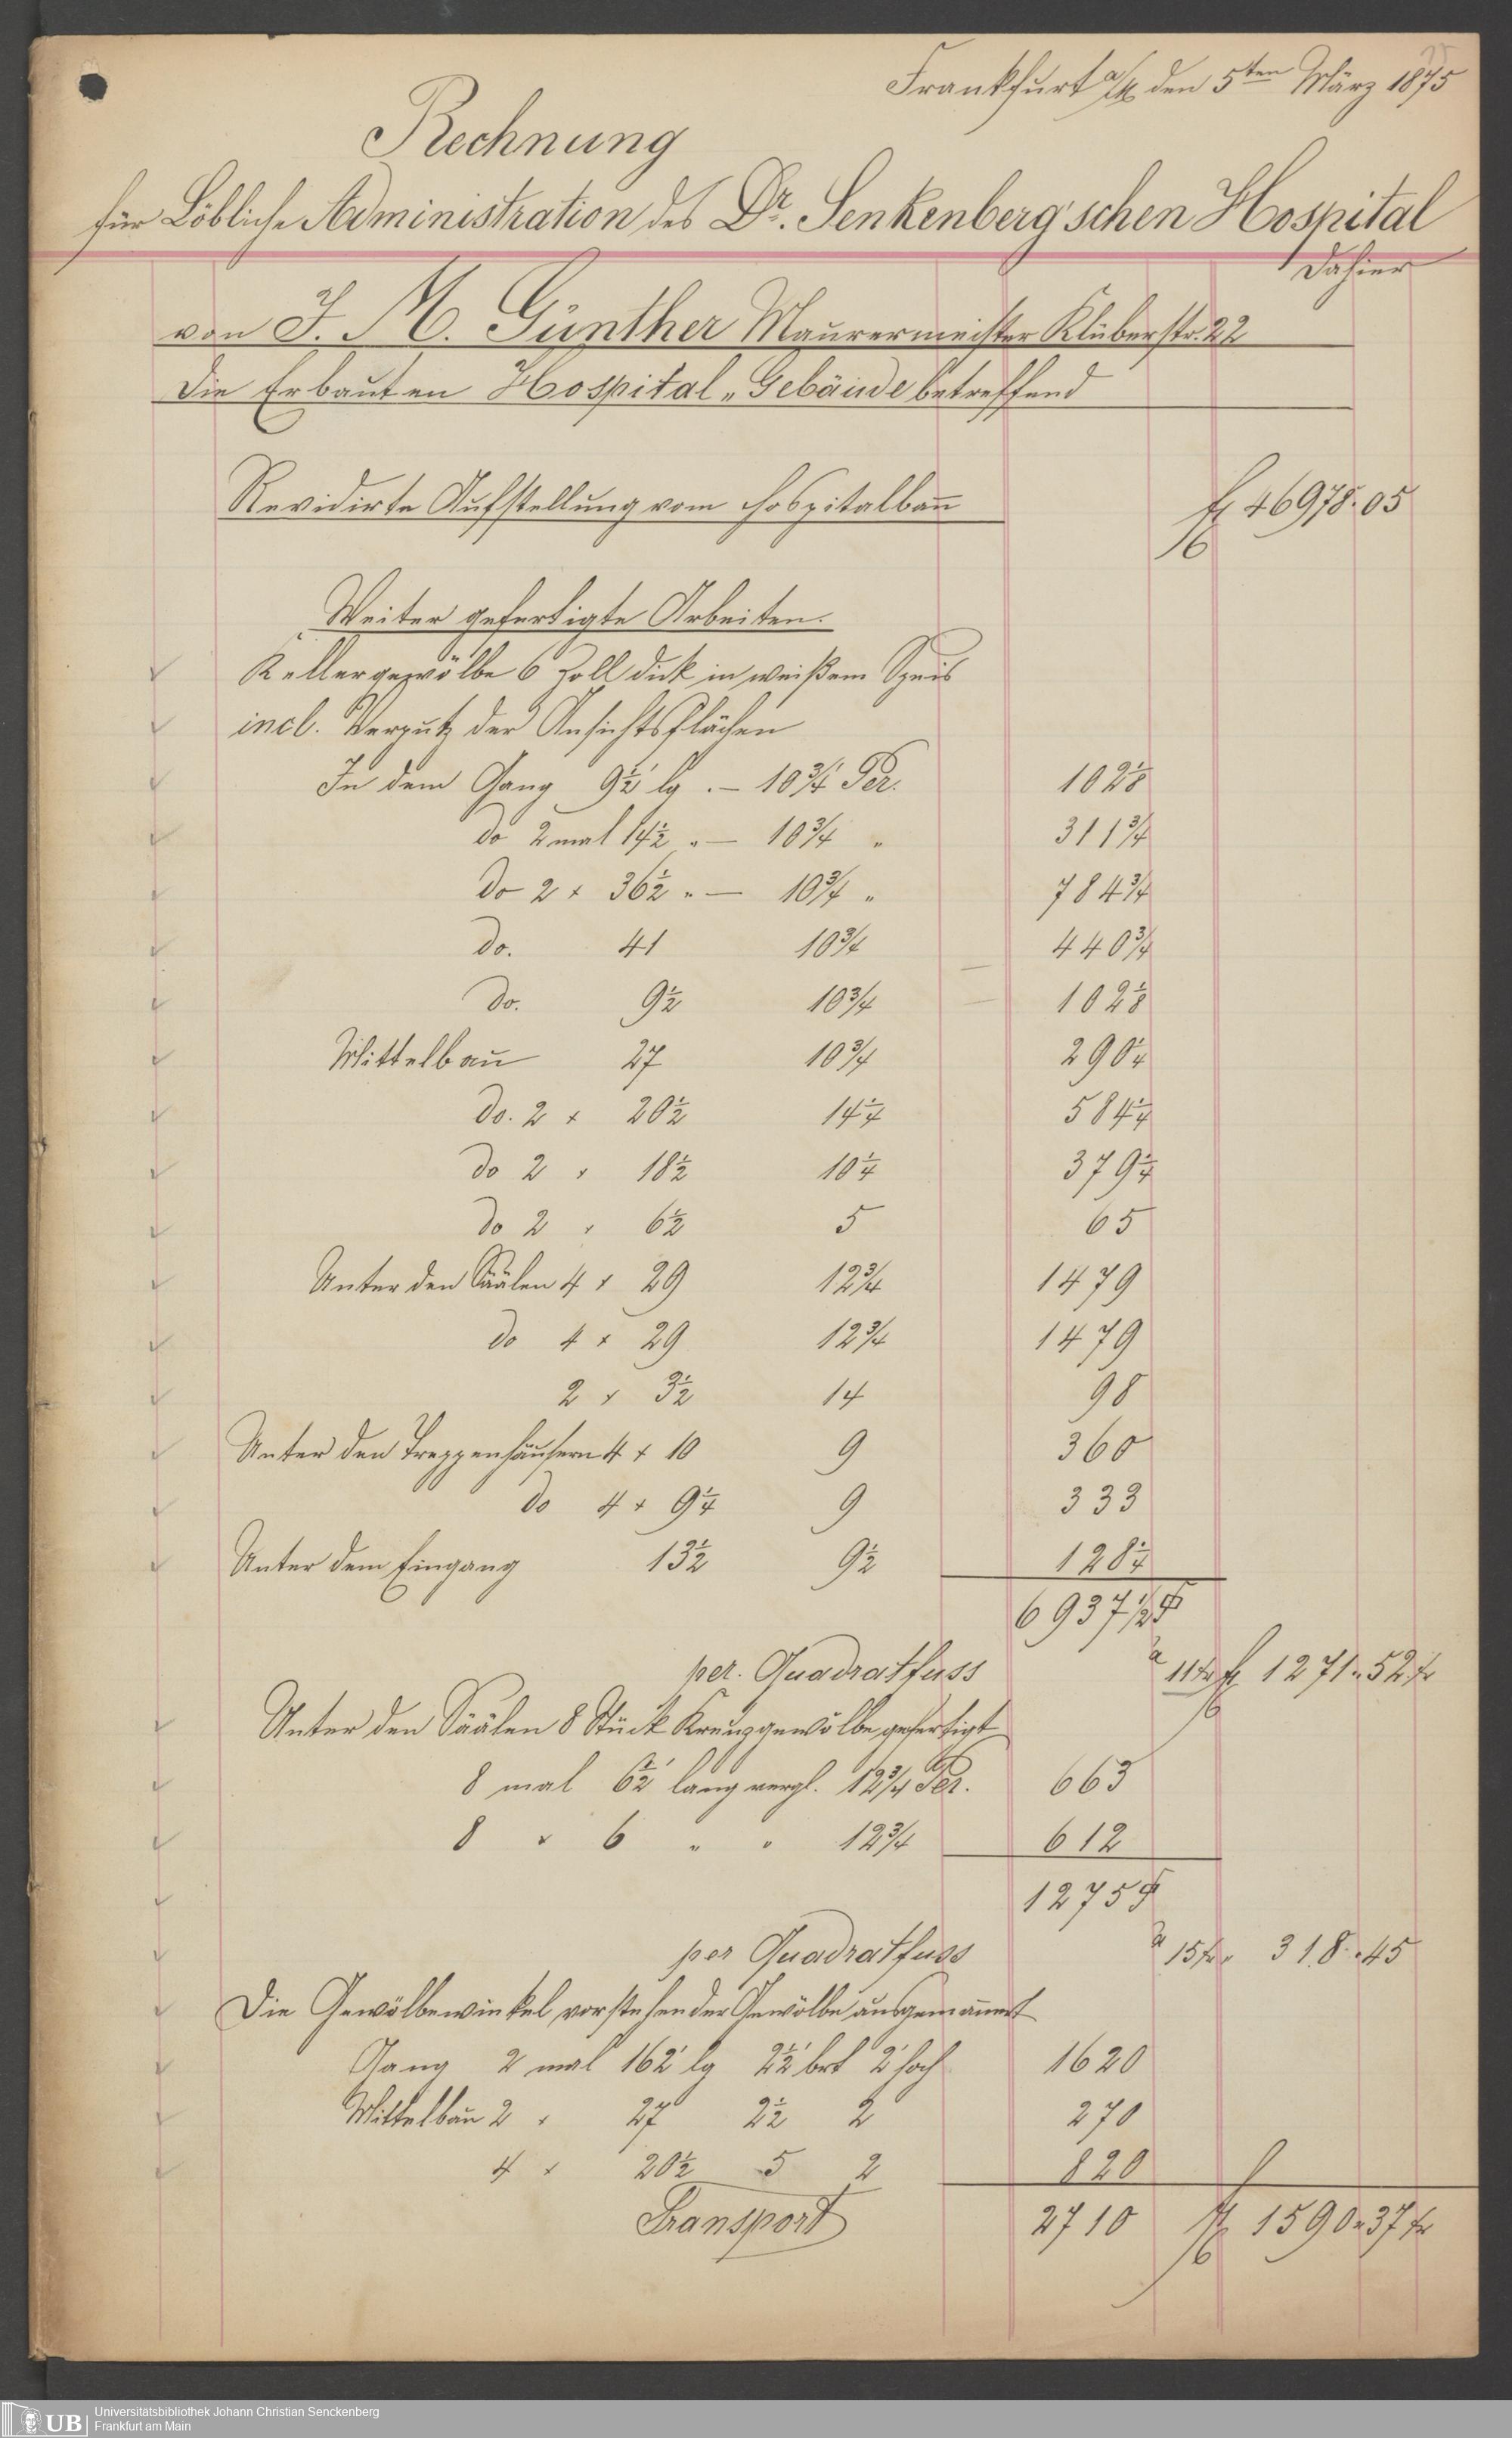 Frankfurt a/M den 5ten März 1875
Rechnung
für Löbliche Administration des Dr. Senkenberg'schen Hospital
dahier
von J. M. Günther Maurermeister Klüberstr. 22
Die Erbauten Hospital „Gebäude betreffend
Revidirte Aufstellung vom Hospitalbau fl 46978.05
Weiter gefertigte Arbeiten.
Kellergewölbe 6 Zoll dick in weißem Speis
incl. Verputz der Ansichtsflächen
In dem Gang 9½' lg. – 10¾' Per. 102⅛
do 2 mal 14½ „ – 10¾ „ 311¾
do 2 × 36½ „ – 10¾ „ 784¾
do. 41 10¾ 440¾
do. 9½ 10¾ 102⅛
Mittelbau 27 10¾ 290¼
do. 2 × 20½ 14¼ 584¼
do 2 × 18½ 10¼ 379¼
do 2 × 6½ 5 65
Unter den Säälen 4 × 29 12¾ 1479
do 4 × 29 12¾ 1479
2 × 3½ 14 98
Unter den Treppenhäusern 4 × 10 9 360
do 4 × 9¼ 9 333
Unter dem Eingang 13½ 9½ 128¼
6937½
per. Quadratfuss à 11 kr fl 1271.52 kr
Unter den Säälen 8 Stück Kreuzgewölbe gefertigt
8 mal 6½' lang vergl. 12¾ Per. 663
8 × 6 „ „ 12¾ 612
1275
per Quadratfuss à 15 kr 318.45
Die Gewölbewinkel vorstehender Gewölbe ausgemauert
Gang 2 mal 162' lg 2½' brt 2' hoch 1620
Mittelbau 2 × 27 2½ 2 270
4 × 20½ 5 2 820
Transport 2710 fl 1590.37 kr
UB Universitätsbibliothek Johann Christian Senckenberg
Frankfurt am Main